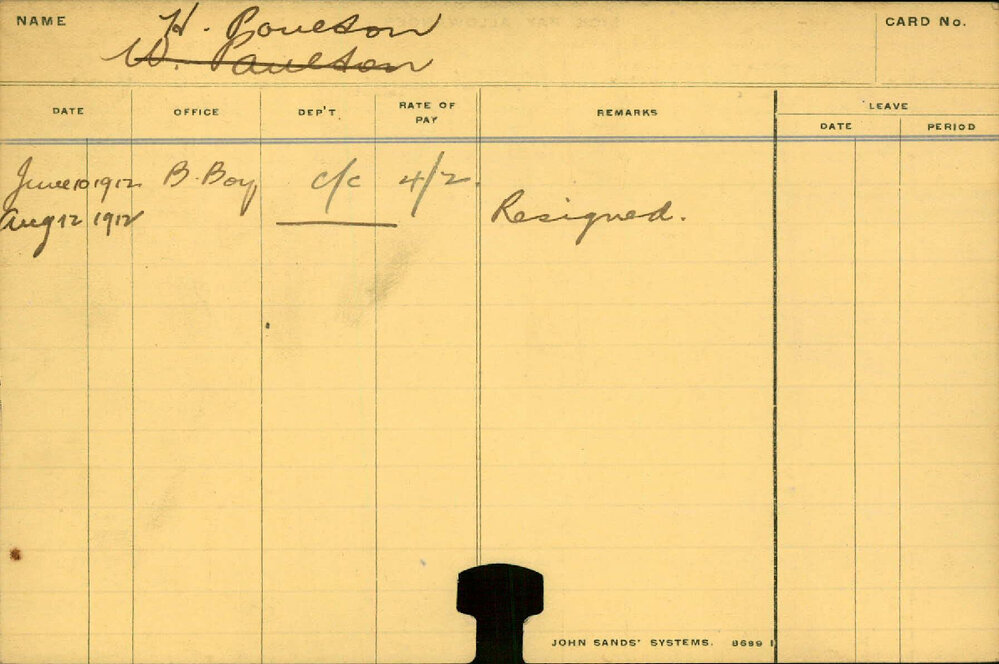 NAME H. Poulson CARD No.
W. Paulson
DATE OFFICE DEP'T RATE OF PAY REMARKS LEAVE
DATE PERIOD
June 10 1912 B. Boy c/c 4/2.
Aug 12 1912 Resigned.
JOHN SANDS' SYSTEMS. 8699